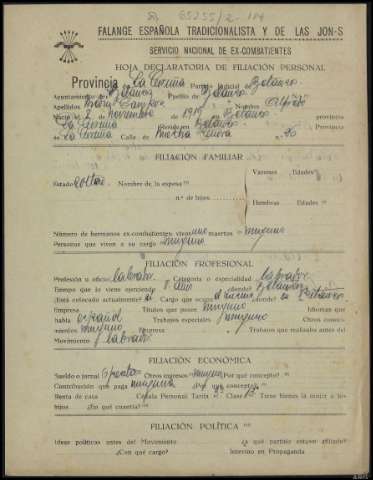 65255/2-114
FALANGE ESPAÑOLA TRADICIONALISTA Y DE LAS JON-S
SERVICIO NACIONAL DE EX-COMBATIENTES
HOJA DECLARATORIA DE FILIACIÓN PERSONAL
Provincia de La Coruña Partido Judicial de Betanzos
Ayuntamiento de Betanzos Pueblo de Betanzos
Apellidos Nombre Alfredo
Nació el 2 de Noviembre de Betanzos provincia
La Coruña Reside en Betanzos Provincia
La Coruña Calle de n.º 20
FILIACIÓN FAMILIAR
Estado Soltero Nombre de la esposa
Varones Edades
n.º de hijos
Hembras Edades
Número de hermanos ex-combatientes vivos uno muertos ninguno
Personas que viven a su cargo ninguno
FILIACIÓN PROFESIONAL
Profesión u oficio labrador Categoría o especialidad labrador
Tiempo que lo viene ejerciendo 8 años ¿dónde? Betanzos
¿Está colocado actualmente? si Cargo que ocupa el mismo ¿dónde? en Betanzos
Empresa Títulos que posee ninguno Idiomas que
habla español Trabajos especiales ninguno Otros conoci-
mientos ninguno Trabajos que realizaba antes del
Movimiento labrador
FILIACIÓN ECONÓMICA
Sueldo o jornal Otros ingresos ninguno Por qué concepto?
Contribución que paga ninguna ¿Por qué concepto?
Renta de casa Cédula Personal Tarifa Clase Tuvo bienes la mujer o los
hijos ¿En qué cuantía?
FILIACIÓN POLÍTICA
Ideas políticas antes del Movimiento ¿a qué partido estuvo afiliado?
¿Con qué cargo? Intervino en Propaganda